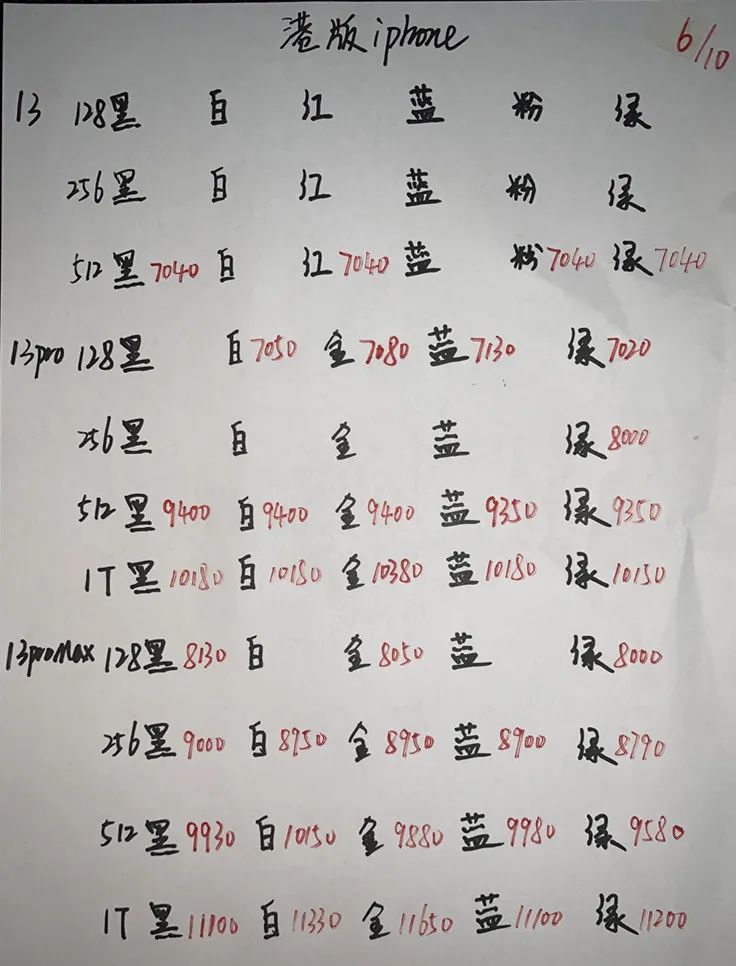 港版iphone
6/10
13 128黑 白 红 蓝 粉 绿
256黑 白 红 蓝 粉 绿
512黑7040 白 红7040 蓝 粉7040 绿7040
13pro 128黑 白7050 金7080 蓝7130 绿7020
256黑 白 金 蓝 绿8000
512黑9400 白9400 金9400 蓝9350 绿9350
1T黑10180 白10180 金10380 蓝10180 绿10150
13proMax 128黑8130 白 金8050 蓝 绿8000
256黑9000 白8950 金8950 蓝8900 绿8790
512黑9930 白10150 金9880 蓝9980 绿9580
1T黑11100 白11330 金11650 蓝11100 绿11200